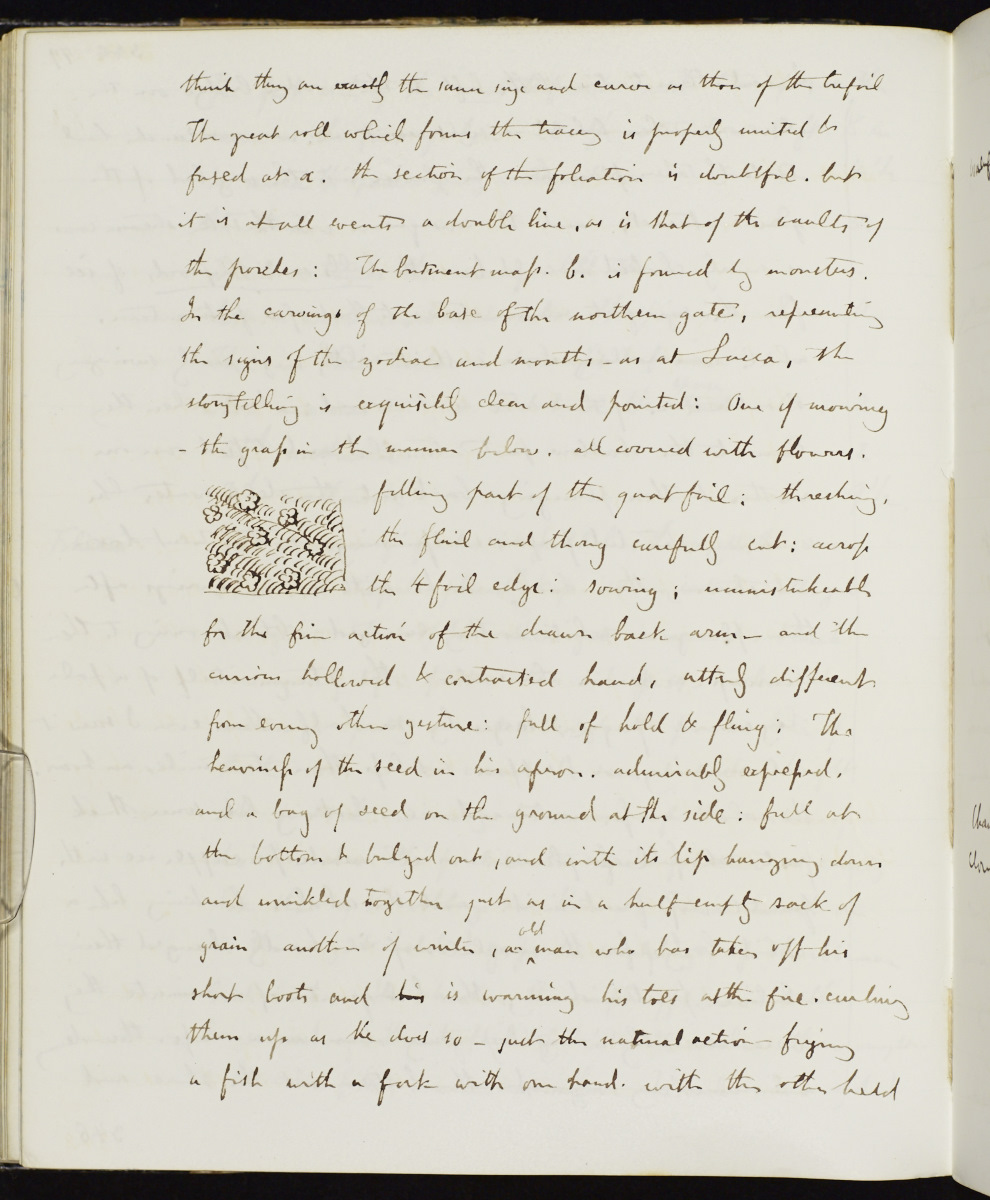 think they are exactly the same size and curve as those of the trefoil
The great roll which forms the tracery is properly united &
fused at α. the section of the foliation is doubtful. but
it is at all events a double line, as is that of the vaults of
the porches: The buttment mass. b. is formed by monsters.
In the carvings of the base of the northern gate, representing
the signs of the zodiac and months - as at Lucca, the
storytelling is exquisitely clear and pointed: One of mowing
- the grass in the manner below. all covered with flowers.
filling part of the quatrfoil: threshing,
the flail and thong carefully cut: across
the 4 foil edge: sowing; unmistakeable
for the fine action of the drawn back arm - and the
curious hollowed & contracted hand, utterly different
from every other gesture: full of hold & fling: The
heaviness of the seed in his apron. admirably expressed.
and a bag of seed on the ground at the side: full at
the bottom & bulged out, and with its lip hanging down
and wrinkled together just as in a half empty sack of
grain another of winter, an old man who has taken off his
short boots and his is warming his toes at the fire. curling
them up as he does so - just the natural action - frying
a fish with a fork with one hand. with the other held